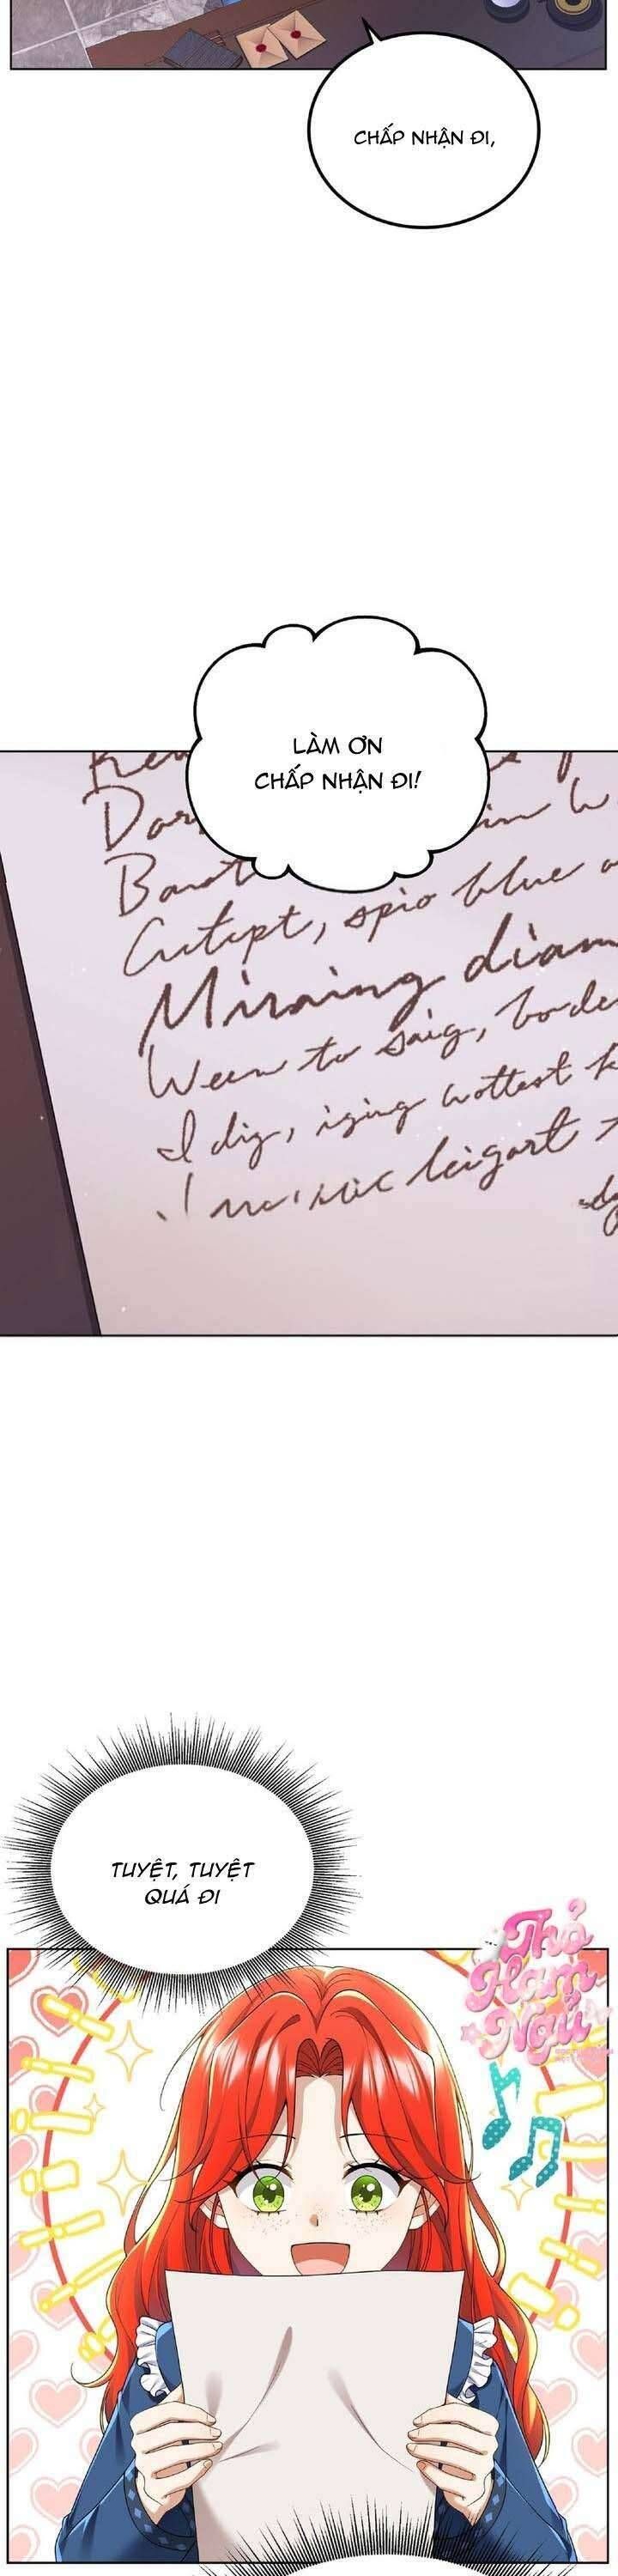 CHẤP NHẬN ĐI,
LÀM ƠN
CHẤP NHẬN ĐI!
Cutept, spio blue
Miraing diam
Ween to saig, borde
I dig, iging wottest
leigart
TUYỆT, TUYỆT
QUÁ ĐI
Thỏ
Ham
Ngủ